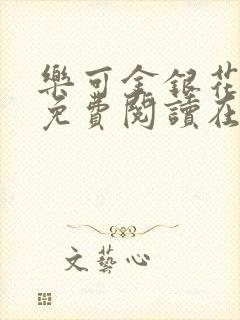 樂可金銀花
免費閱讀在
文藝心